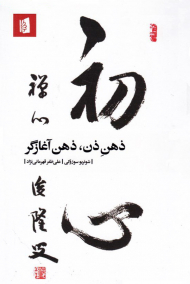 初心
禅心
ذهنِ ذن، ذهن آغازگر
| شونریو سوزوکی | علی‌ظفر قهرمانی‌نژاد |
俊隆